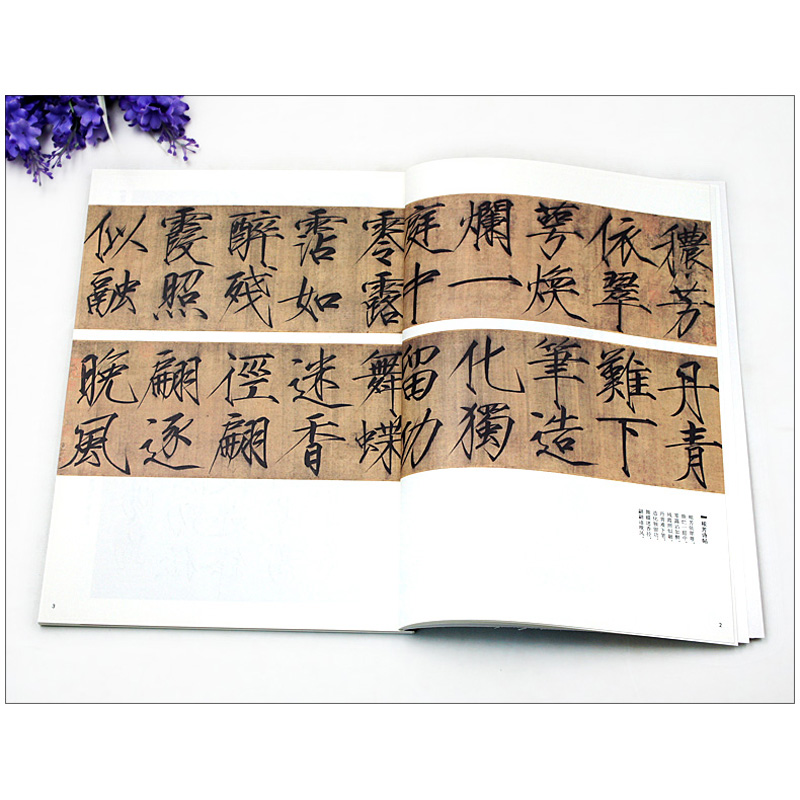 穠芳
依翠
萼煥
爛一
庭中
零露
霑如
醉殘
霞照
似融
丹青
難下
筆造
化獨
留功
舞蝶
迷香
徑翩
翩逐
晚風
秾芳诗帖
秾芳依翠萼，
焕烂一庭中。
零露沾如醉，
残霞照似融。
丹青难下笔，
造化独留功。
舞蝶迷香径，
翩翩逐晚风。
2
3